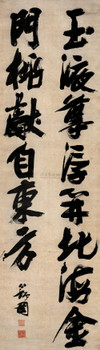 玉液尊浮開北海金
門桃獻自東方
瑞圖